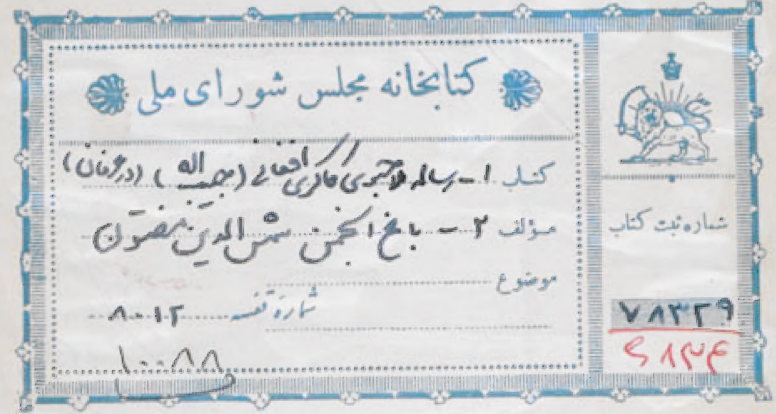 کتابخانه مجلس شورای ملی
کتاب ۱ - رساله کاکری افغانی (حبیب اله) (در عرفان)
مؤلف ۲ - باغ انجمن شمس الدین مفتون
موضوع
شماره قفسه ۸۰۱۲
۱۰۰۸۸
شماره ثبت کتاب
۷۸۳۲۹